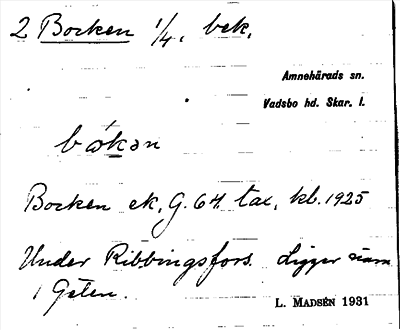 2 Bocken 1/4, bek.
Amnehärads sn.
Vadsbo hd. Skar. l.
bɷ́kən
Bocken ek, G. 64. tax, kb. 1925
Under Ribbingsfors. Ligger
i Gsten.
L. MADSÉN 1931